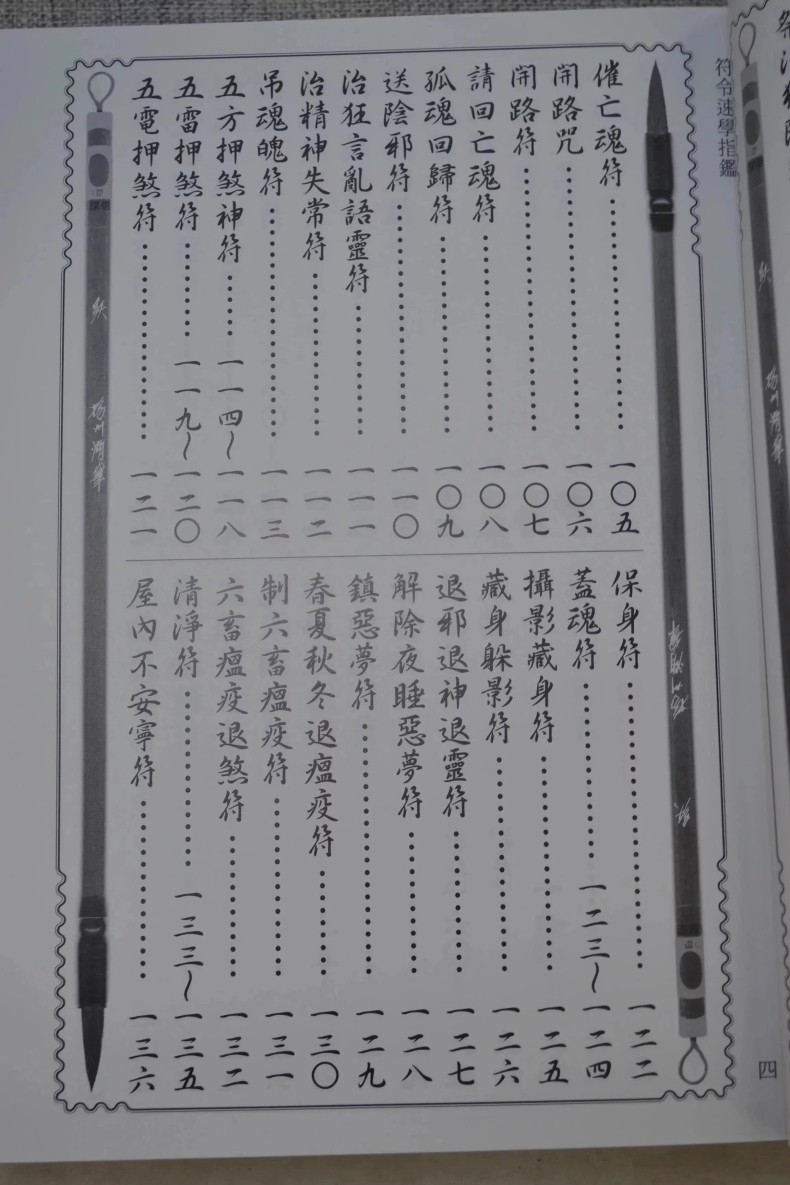 符令速學指鑑
催亡魂符…………一〇五
開路咒…………一〇六
開路符…………一〇七
請回亡魂符…………一〇八
孤魂回歸符…………一〇九
送陰邪符…………一一〇
治狂言亂語靈符…………一一一
治精神失常符…………一一二
吊魂魄符…………一一三
五方押煞神符……一一四~一一八
五雷押煞符……一一九~一二〇
五電押煞符…………一二一
保身符…………一二二
蓋魂符…………一二三~一二四
攝影藏身符…………一二五
藏身躲影符…………一二六
退邪退神退靈符…………一二七
解除夜睡惡夢符…………一二八
鎮惡夢符…………一二九
春夏秋冬退瘟疫符…………一三〇
制六畜瘟疫符…………一三一
六畜瘟疫退煞符…………一三二
清淨符…………一三三~一三五
屋內不安寧符…………一三六
四